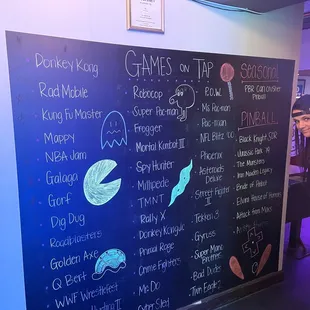 GAMES ON TAP
Donkey Kong
Rad Mobile
Kung Fu Master
Mappy
NBA Jam
Galaga
Gorf
Dig Dug
Roadblasters
Golden Axe
Q Bert
WWF Wrestlefest
Robocop
Super Pac-man
Frogger
Mortal Kombat II
Spy Hunter
Millipede
TMNT
Rally X
Donkey Kong Jr.
Primal Rage
Crime Fighters
Mr. Do
Cyber Sled
P.O.W.
Ms. Pac-man
Pac-man
NFL Blitz
Phoenix
Asteroids
Deluxe
Street Fighter
II
Tekken 3
Gyruss
Super Mario
Brothers
Bad Dudes
Twin Eagle 2
SEASONAL
PBR Can Crusher
Pinball
PINBALL
Black Knight SOR
Jurassic Park
The Munsters
Iron Maiden Legacy
Bride of Pinbot
Elvira House of Horrors
Attack from Mars